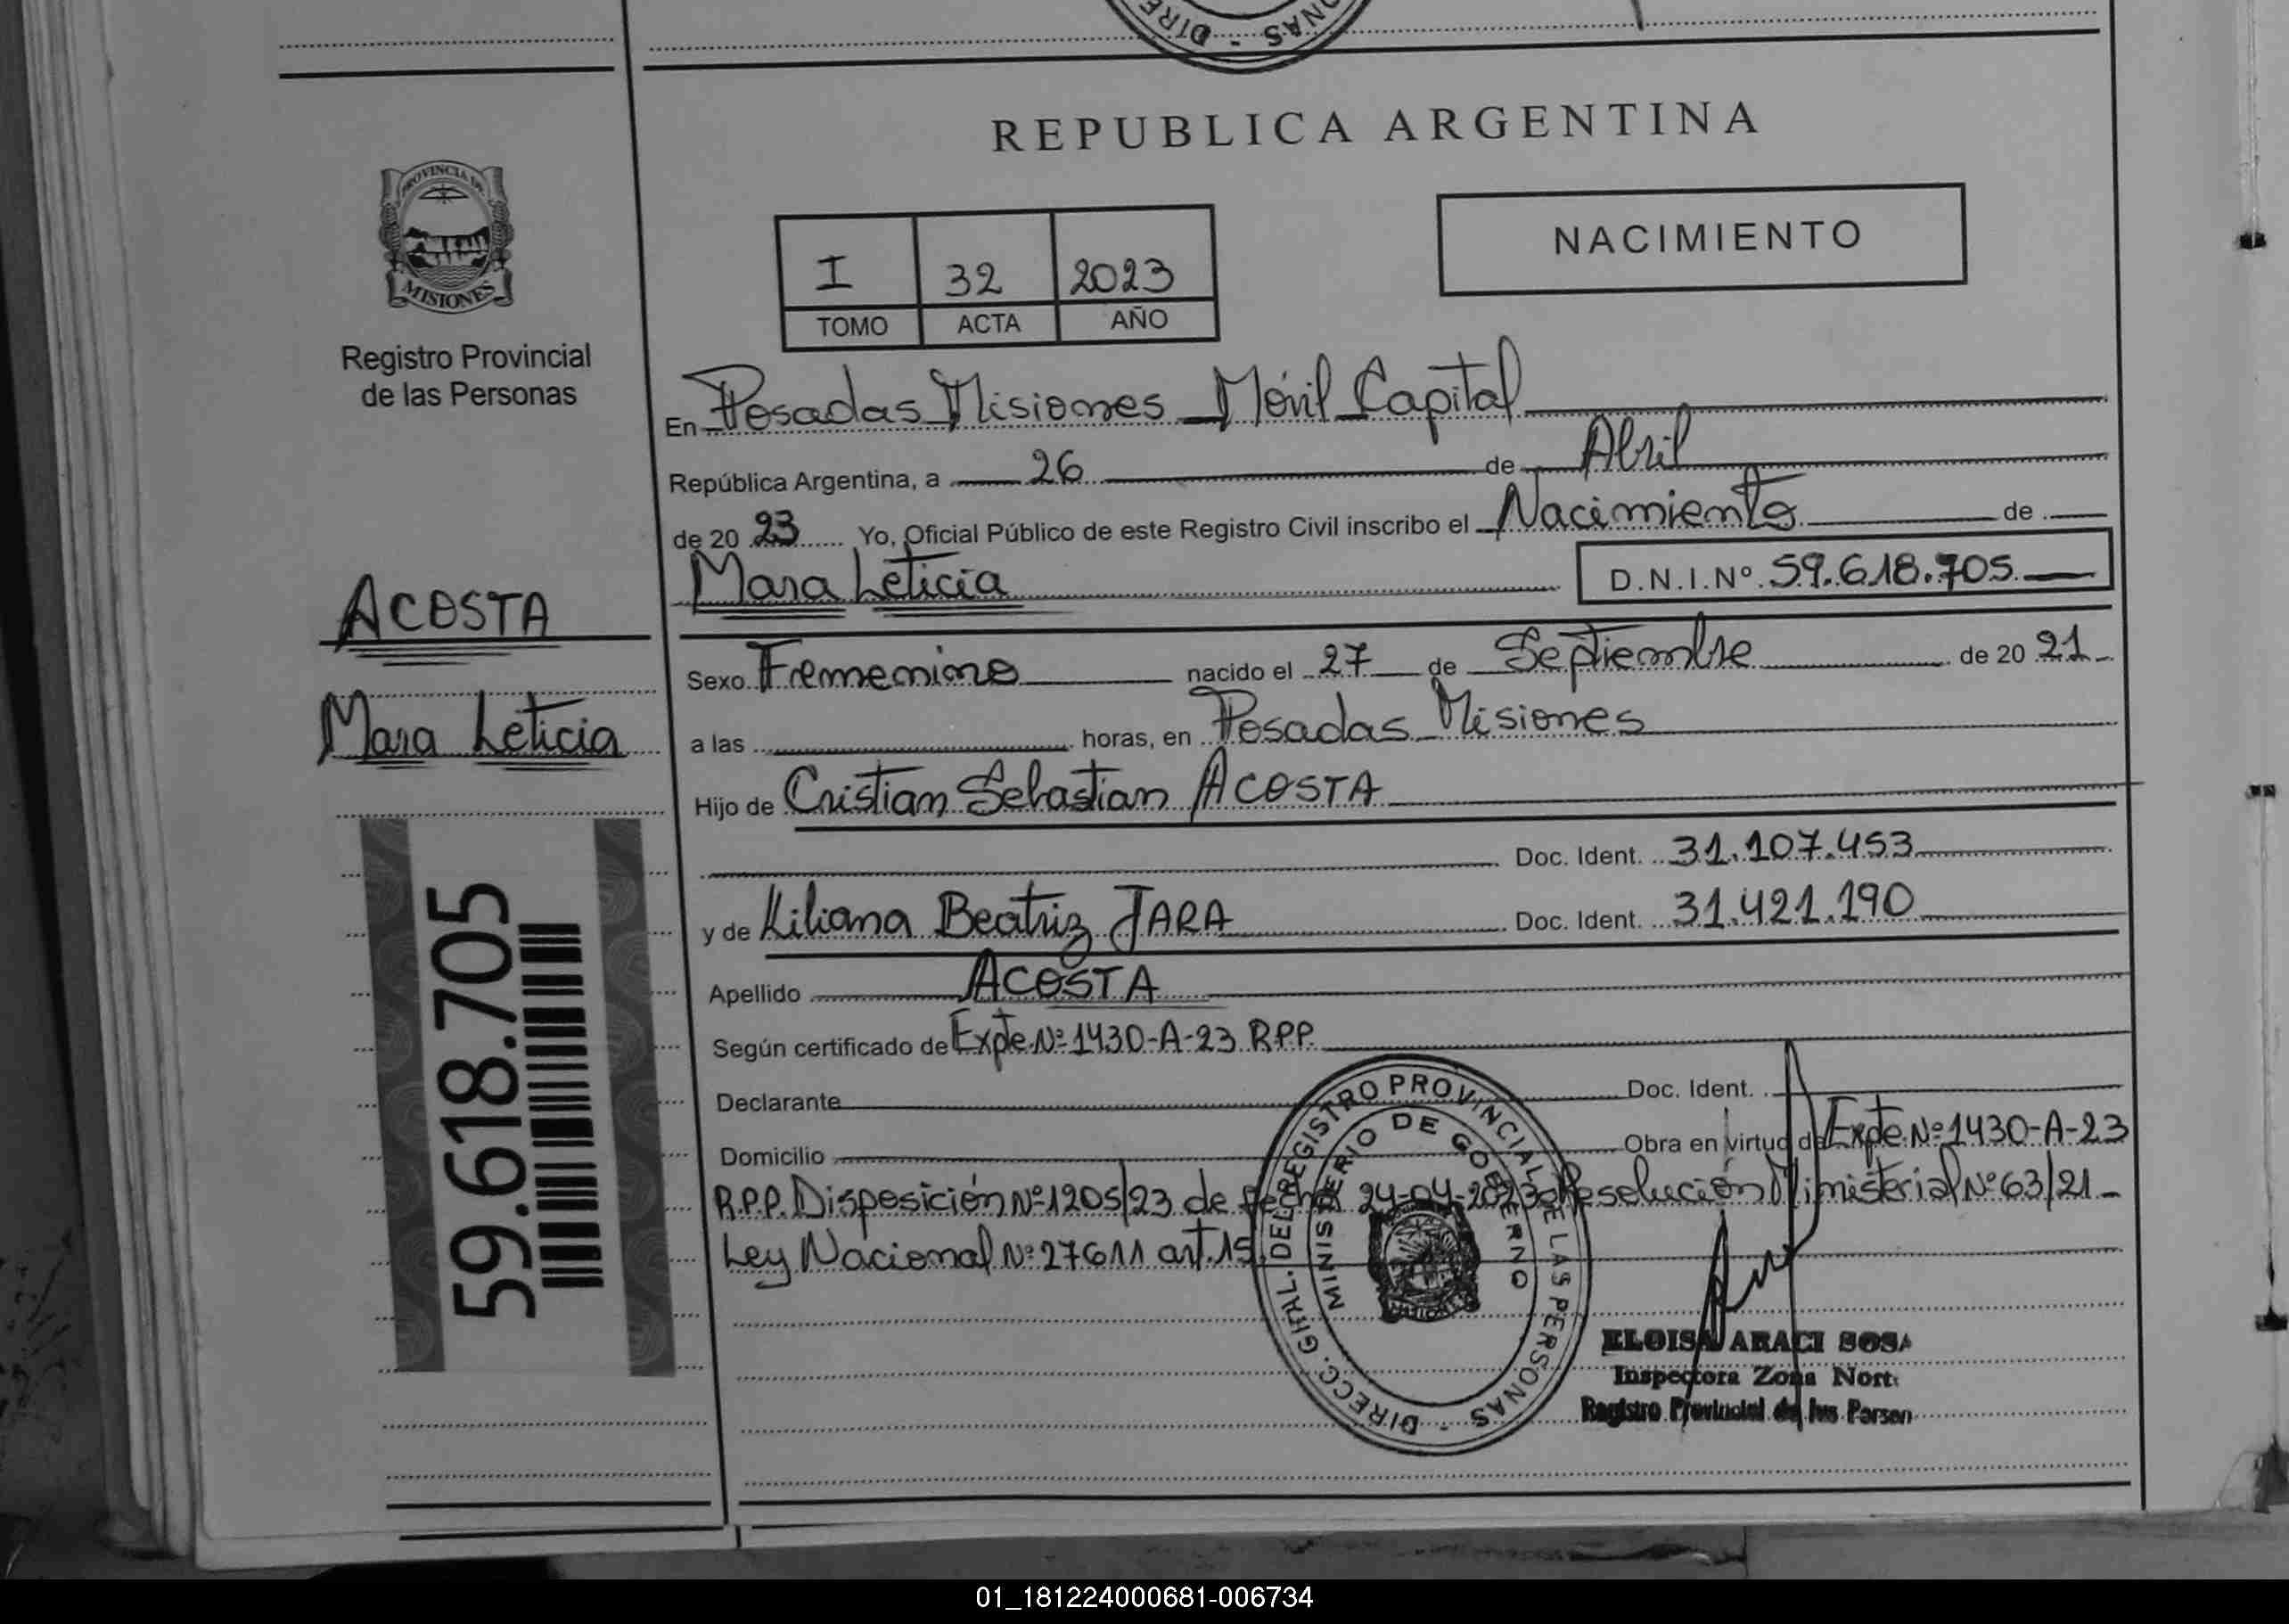 DIRE - NAS
REPUBLICA ARGENTINA
PROVINCIA DE
MISIONES
Registro Provincial
de las Personas
I 32 2023
TOMO ACTA AÑO
NACIMIENTO
En Posadas Misiones Móvil Capital
República Argentina, a 26 de Abril
de 20 23 Yo, Oficial Público de este Registro Civil inscribo el Nacimiento de
Mara Leticia D.N.I.Nº 59.618.705
ACOSTA
Mara Leticia
Sexo Femenino nacido el 27 de Septiembre de 20 21
a las horas, en Posadas Misiones
Hijo de Cristian Sebastian ACOSTA
Doc. Ident. 31.107.453
y de Liliana Beatriz JARA Doc. Ident. 31.421.190
Apellido ACOSTA
Según certificado de Expte Nº 1430-A-23 R.P.P.
Declarante Doc. Ident.
Domicilio Obra en virtud de Expte. Nº 1430-A-23
R.P.P. Disposición Nº 1205/23 de fecha 24-04-2023 Resolución Ministerial Nº 63/21
Ley Nacional Nº 27611 art. 15
59.618.705
DIRECC. GRAL. DEL REGISTRO PROVINCIAL DE LAS PERSONAS -
MINISTERIO DE GOBIERNO
ELOISA ARACI SOSA
Inspectora Zona Nort
Registro Provincial de las Person
01_181224000681-006734